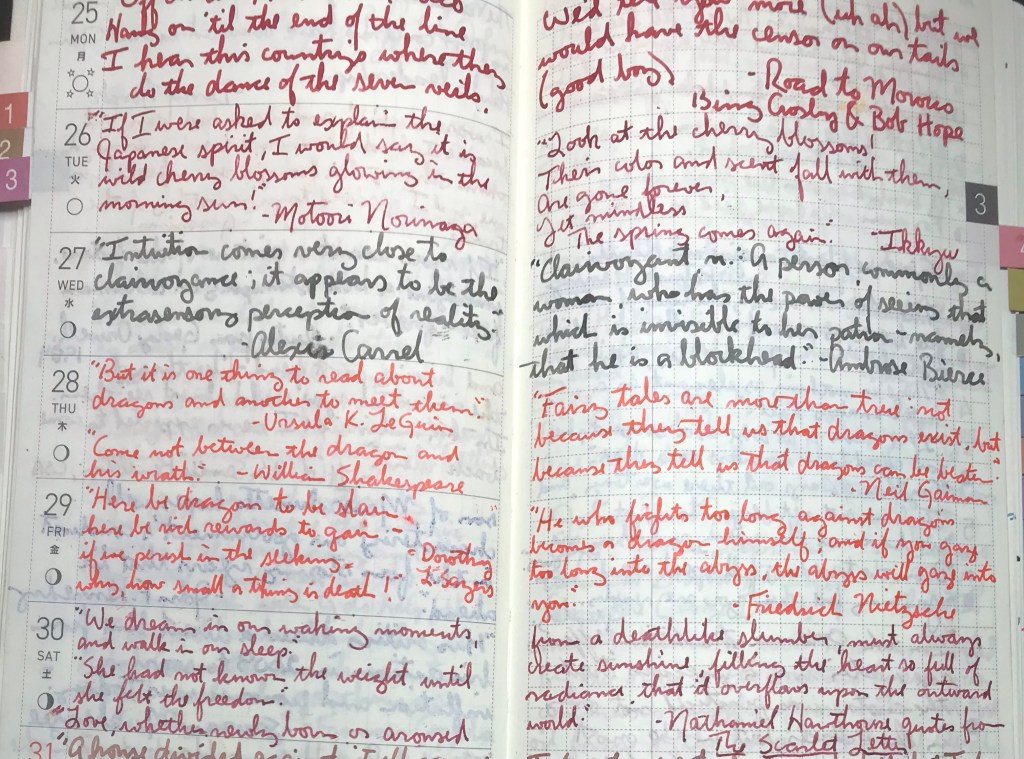 25
MON
月
Hang on 'til the end of the line
I hear this country's where they
do the dance of the seven veils.
1
26
TUE
火
"If I were asked to explain the
Japanese spirit, I would say it is
wild cherry blossoms glowing in the
morning sun!"
-Motoori Norinaga
2
3
27
WED
水
"Intuition comes very close to
clairvoyance; it appears to be the
extrasensory perception of reality."
-Alexis Carrel
28
THU
木
"But it is one thing to read about
dragons and another to meet them."
-Ursula K. LeGuin
"Come not between the dragon and
his wrath." - William Shakespeare
29
FRI
金
"Here be dragons to be slain,
here be rich rewards to gain -
if we perish in the seeking,
why, how small a thing is death!"
-Dorothy
L Sayers
30
SAT
土
"We dream in our waking moments,
and walk in our sleep."
"She had not known the weight until
she felt the freedom."
"Love, whether newly born or aroused
31
"A house divided against itself
We'd tell you more (uh ah) but we
would have the censor on our tails
(good boy)
- Road to Morocco
Bing Crosby & Bob Hope
"Look at the cherry blossoms!
Their color and scent fall with them,
Are gone forever,
Yet mindless
The spring comes again."
-Ikkyu
3
"Clairvoyant n.: A person commonly a
woman, who has the power of seeing that
which is invisible to her patron - namely,
that he is a blockhead." -Ambrose Bierce
"Fairy tales are more than true: not
because they tell us that dragons exist, but
because they tell us that dragons can be beaten."
-Neil Gaiman
"He who fights too long against dragons
becomes a dragon himself; and if you gaze
too long into the abyss, the abyss will gaze into
you."
- Friedrich Nietzsche
from a deathlike slumber, must always
create sunshine filling the heart so full of
radiance, that it overflows upon the outward
world."
-Nathaniel Hawthorne quotes from
The Scarlet Letter